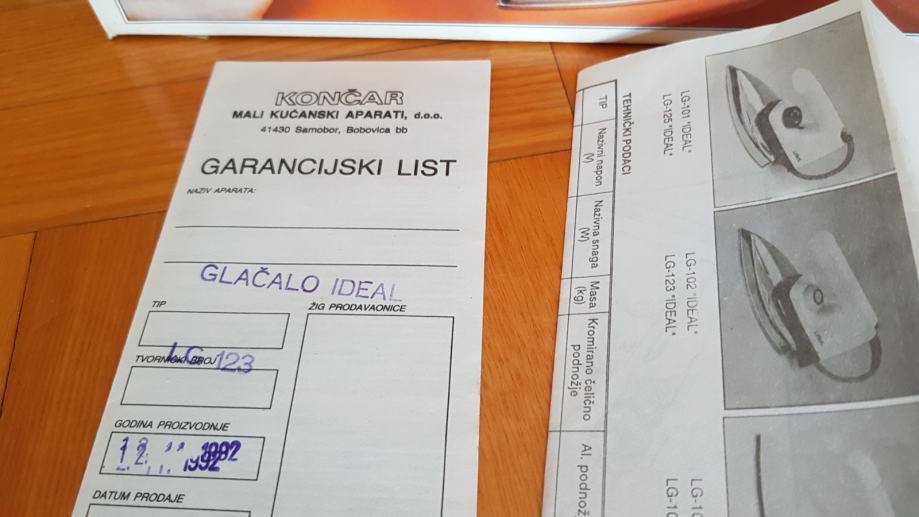 KONČAR
MALI KUĆANSKI APARATI, d.o.o.
41430 Samobor, Bobovica bb
GARANCIJSKI LIST
NAZIV APARATA:
GLAČALO IDEAL
TIP
ŽIG PRODAVAONICE
LG 123
TVORNIČKI BROJ
GODINA PROIZVODNJE
1992
DATUM PRODAJE
TEHNIČKI PODACI
TIP
Nazivni napon (V)
Nazivna snaga (W)
Masa (kg)
Kromirano čelično podnožje
Al. podnož
LG-101 "IDEAL"
LG-125 "IDEAL"
LG-102 "IDEAL"
LG-123 "IDEAL"
LG-10
LG-10